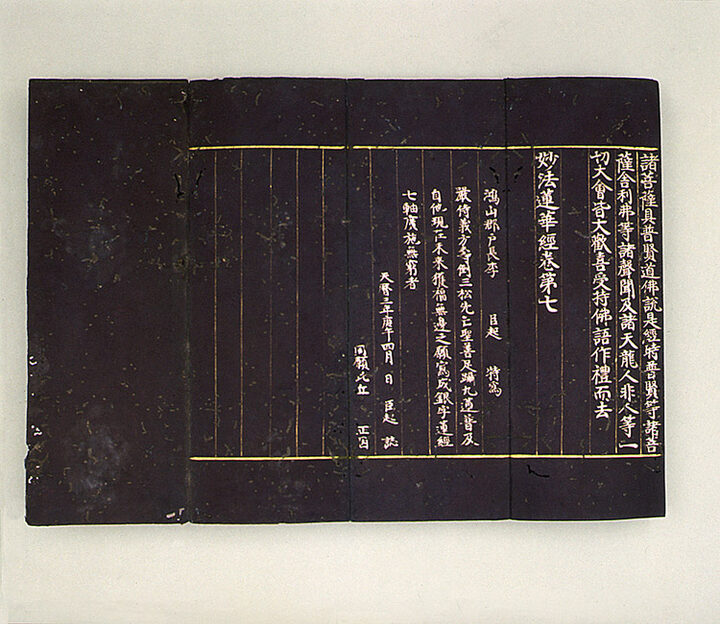 諸菩薩具普賢道佛說是經時普賢等諸菩
薩舍利弗等諸聲聞及諸天龍人非人等一
切大會皆大歡喜受持佛語作禮而去
妙法蓮華經卷第七
鴻山郡戶長李 臣起 特為
嚴侍義方考倒三松先亡聖善足躡九蓮普及
自他現在未來獲福無邊之願寫成銀字蓮經
七軸廣施無窮者
天曆三年庚午四月 日 臣起 誌
同願比丘 正因